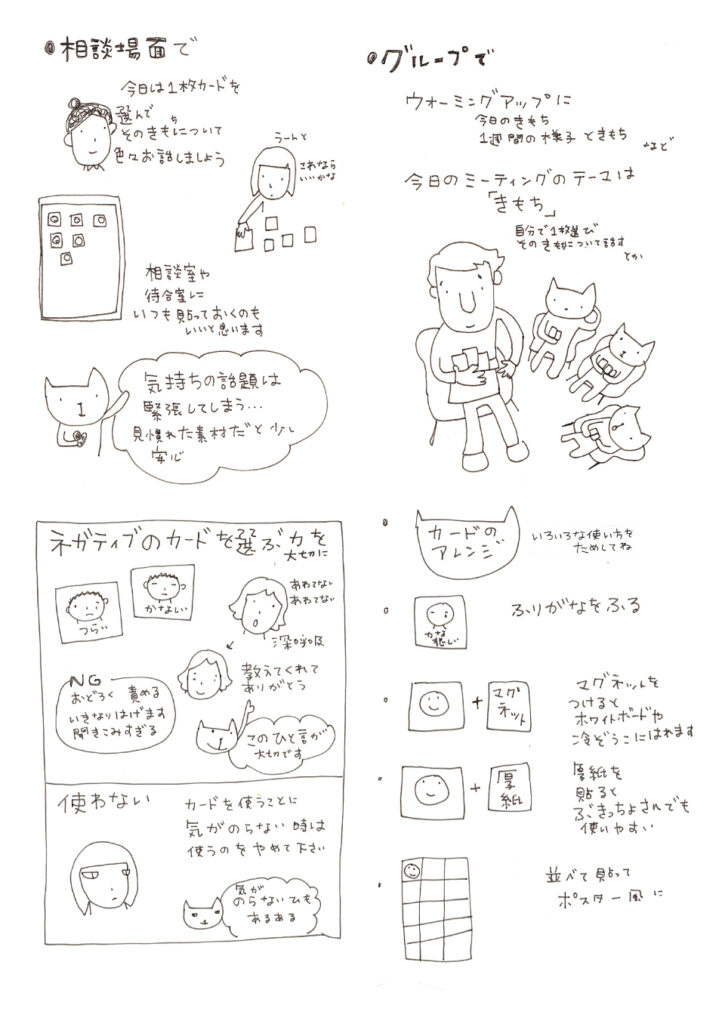 相談場面で
今日は1枚カードを
選んで
そのきもちについて
色々お話しましょう
うーんと
これなら
いいかな
相談室や
待合室に
いつも貼っておくのも
いいと思います
気持ちの話題は
緊張してしまう…
見慣れた素材だと少し
安心
グループで
ウォーミングアップに
今日のきもち
1週間の様子ときもち
など
今日のミーティングのテーマは
「きもち」
自分で1枚選び
そのきもちについて話す
とか
ネガティブのカードを選ぶ力を
大切に
つらい
かなしい
あわてない
あわてない
深呼吸
教えてくれて
ありがとう
NG
おどろく 責める
いきなりはげます
聞きこみすぎる
このひと言が
大切です
使わない
カードを使うことに
気がのらない時は
使うのをやめて下さい
気が
のらないひも
あるある
カードの
アレンジ
いろいろな使い方を
ためしてね
かな
悲しい
ふりがなをふる
+
マグ
ネット
マグネットを
つけると
ホワイトボードや
冷ぞうこにはれます
+
厚
紙
厚紙を
貼ると
ぶきっちょさんでも
使いやすい
並べて貼って
ポスター風に